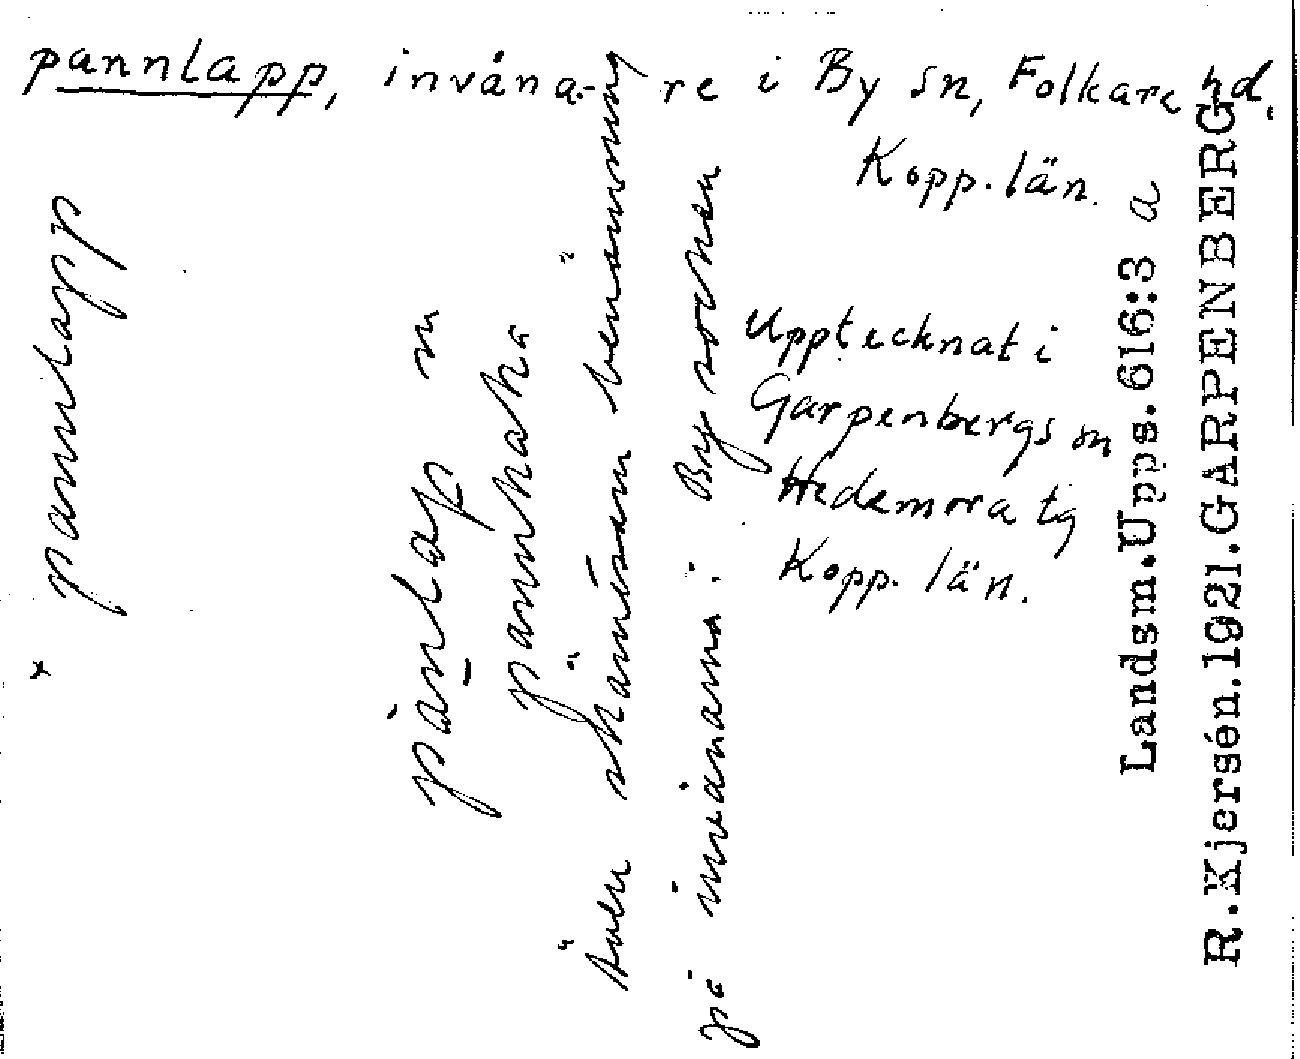 pannlapp, invånare i By sn, Folkare hd.
Kopp. län.
Upptecknat i
Garpenbergs sn
Hedemora tg
Kopp. län.
x pannlapp
pànlap m
pannkaka
även skämtsam benämning
på invånarna i By socken
Landsm.Upps.616:3 a
R.Kjersén.1921.GARPENBERG